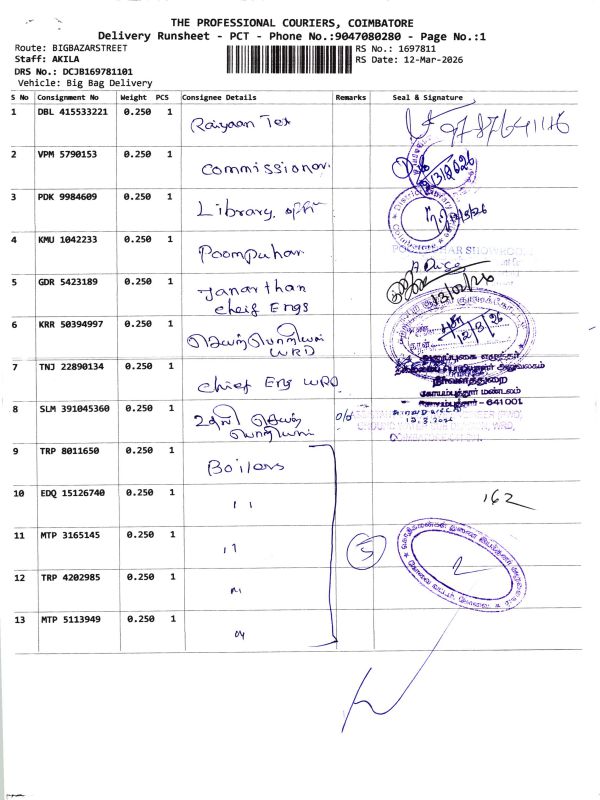 THE PROFESSIONAL COURIERS, COIMBATORE
Delivery Runsheet - PCT - Phone No.:9047080280 - Page No.:1
Route: BIGBAZARSTREET
RS No.: 1697811
Staff: AKILA
RS Date: 12-Mar-2026
DRS No.: DCJB169781101
Vehicle: Big Bag Delivery
S No Consignment No Weight PCS Consignee Details Remarks Seal & Signature
1 DBL 415533221 0.250 1 Raiyaan Tex
2 VPM 5790153 0.250 1 Commissioner.
3 PDK 9984609 0.250 1 Library off
4 KMU 1042233 0.250 1 Poompuhar
5 GDR 5423189 0.250 1 Janarthan
Cheif Engs
6 KRR 50394997 0.250 1 செயற்பொறியாளர்
WRD 12/3/26
7 TNJ 22890134 0.250 1 Chief Eng WRD
அனுப்புகை எழுத்தர்
தலைமைப் பொறியாளர் அலுவலகம்
நீர்வளத்துறை
கோயம்புத்தூர் மண்டலம்
கோயம்புத்தூர் - 641001
8 SLM 391045360 0.250 1 உதவி செயற்
பொறியாளர்
12.3.2026
9 TRP 8011650 0.250 1 Boilers
10 EDQ 15126740 0.250 1 " 162
11 MTP 3165145 0.250 1 " 5
12 TRP 4202985 0.250 1 "
13 MTP 5113949 0.250 1 "